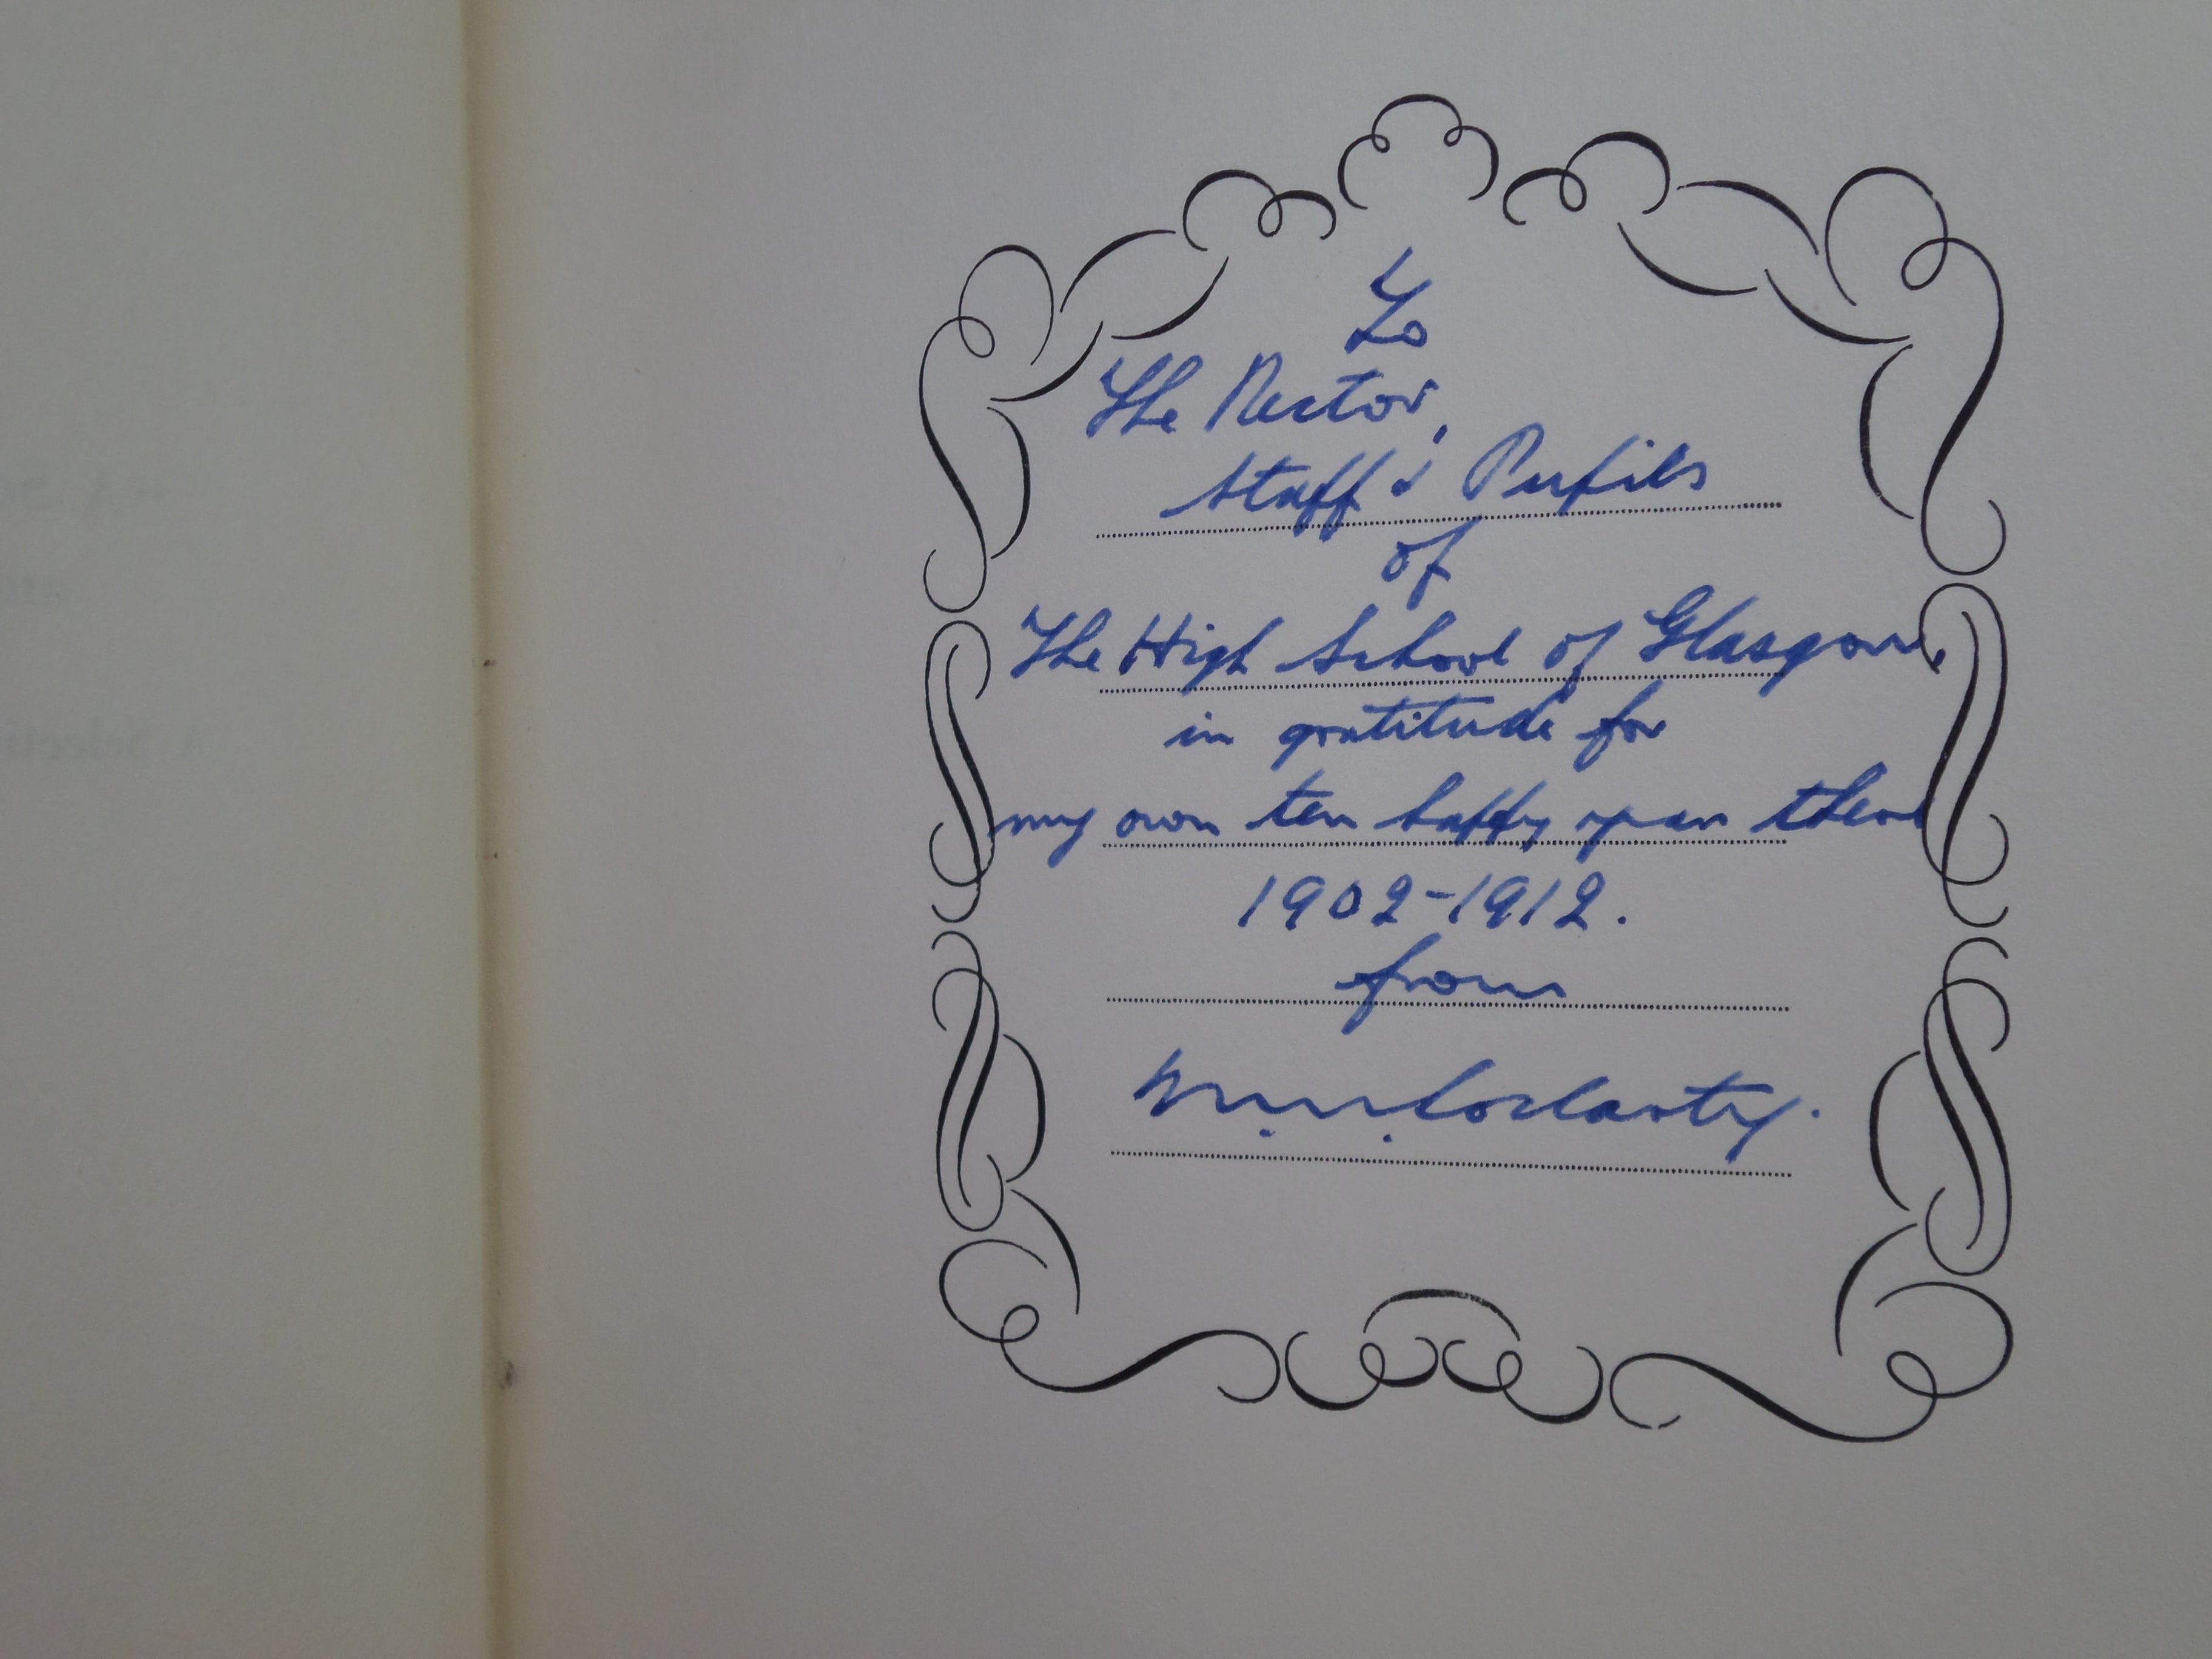 To
The Rector,
Staff & Pupils
of
The High School of Glasgow,
in gratitude for
my own ten happy years there
1902-1912.
from